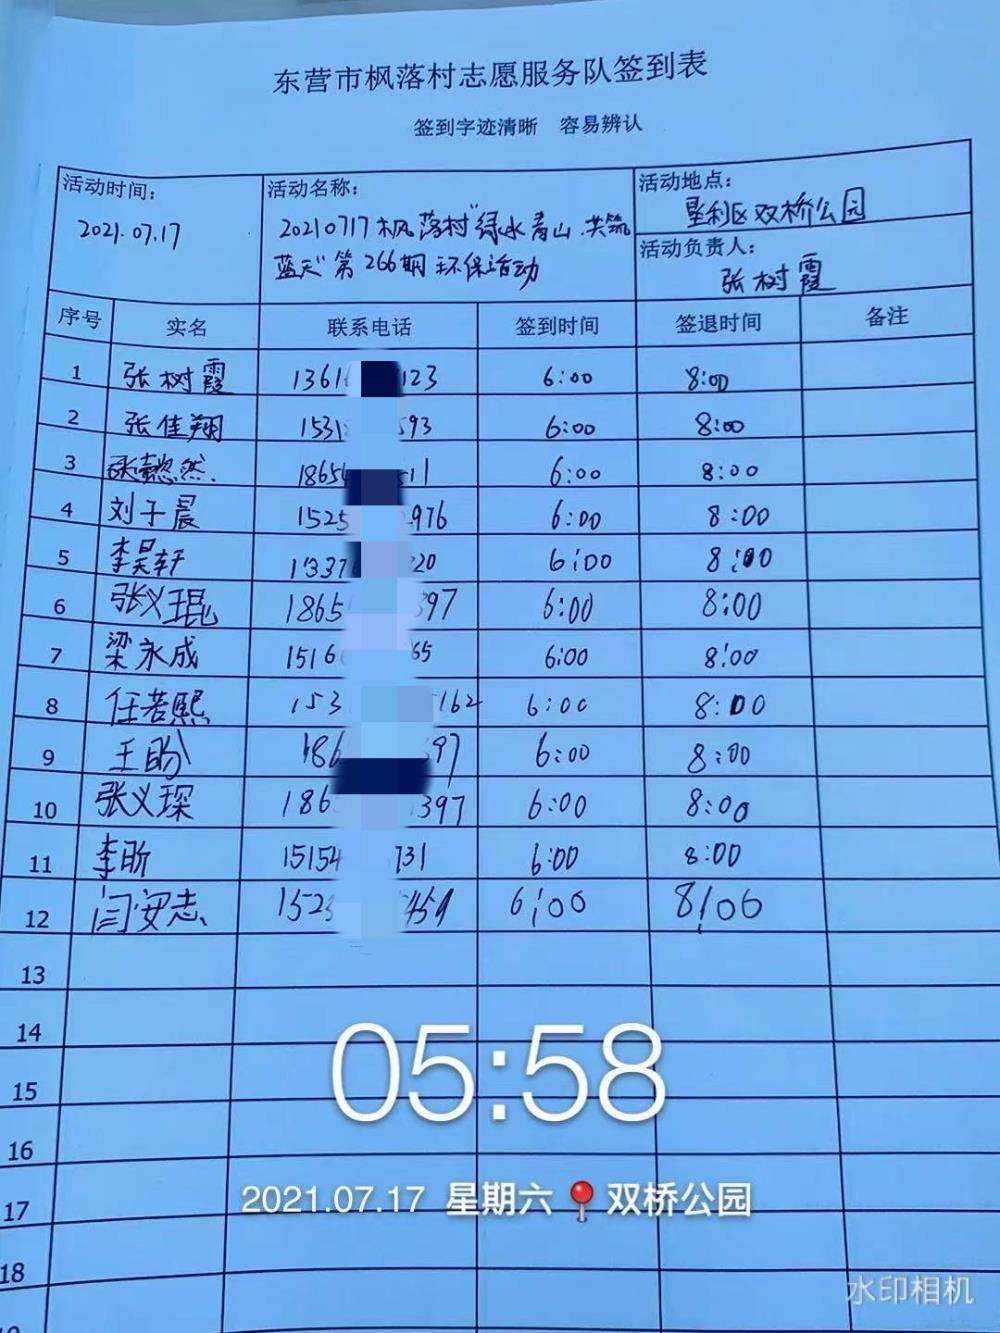 东营市枫落村志愿服务队签到表
签到字迹清晰 容易辨认
活动时间: 活动名称: 活动地点:
2021.07.17 20210717枫落村"绿水青山.共筑 垦利区双桥公园
蓝天"第266期环保活动 活动负责人:
张树霞
序号 实名 联系电话 签到时间 签退时间 备注
1 张树霞 1361 123 6:00 8:00
2 张佳翔 1531 593 6:00 8:00
3 张懿然. 1865 11 6:00 8:00
4 刘于晨 1525 976 6:00 8:00
5 李昊轩 1337 20 6:00 8:00
6 张义琨 1865 397 6:00 8:00
7 梁永成 1516 65 6:00 8:00
8 任若熙 153 162 6:00 8:00
9 王盼 186 97 6:00 8:00
10 张义琛 186 1397 6:00 8:00
11 李昕 15154 731 6:00 8:00
12 闫安志 1523 459 6:00 8:00
13
14
15
16
17
18
05:58
2021.07.17 星期六 双桥公园
水印相机